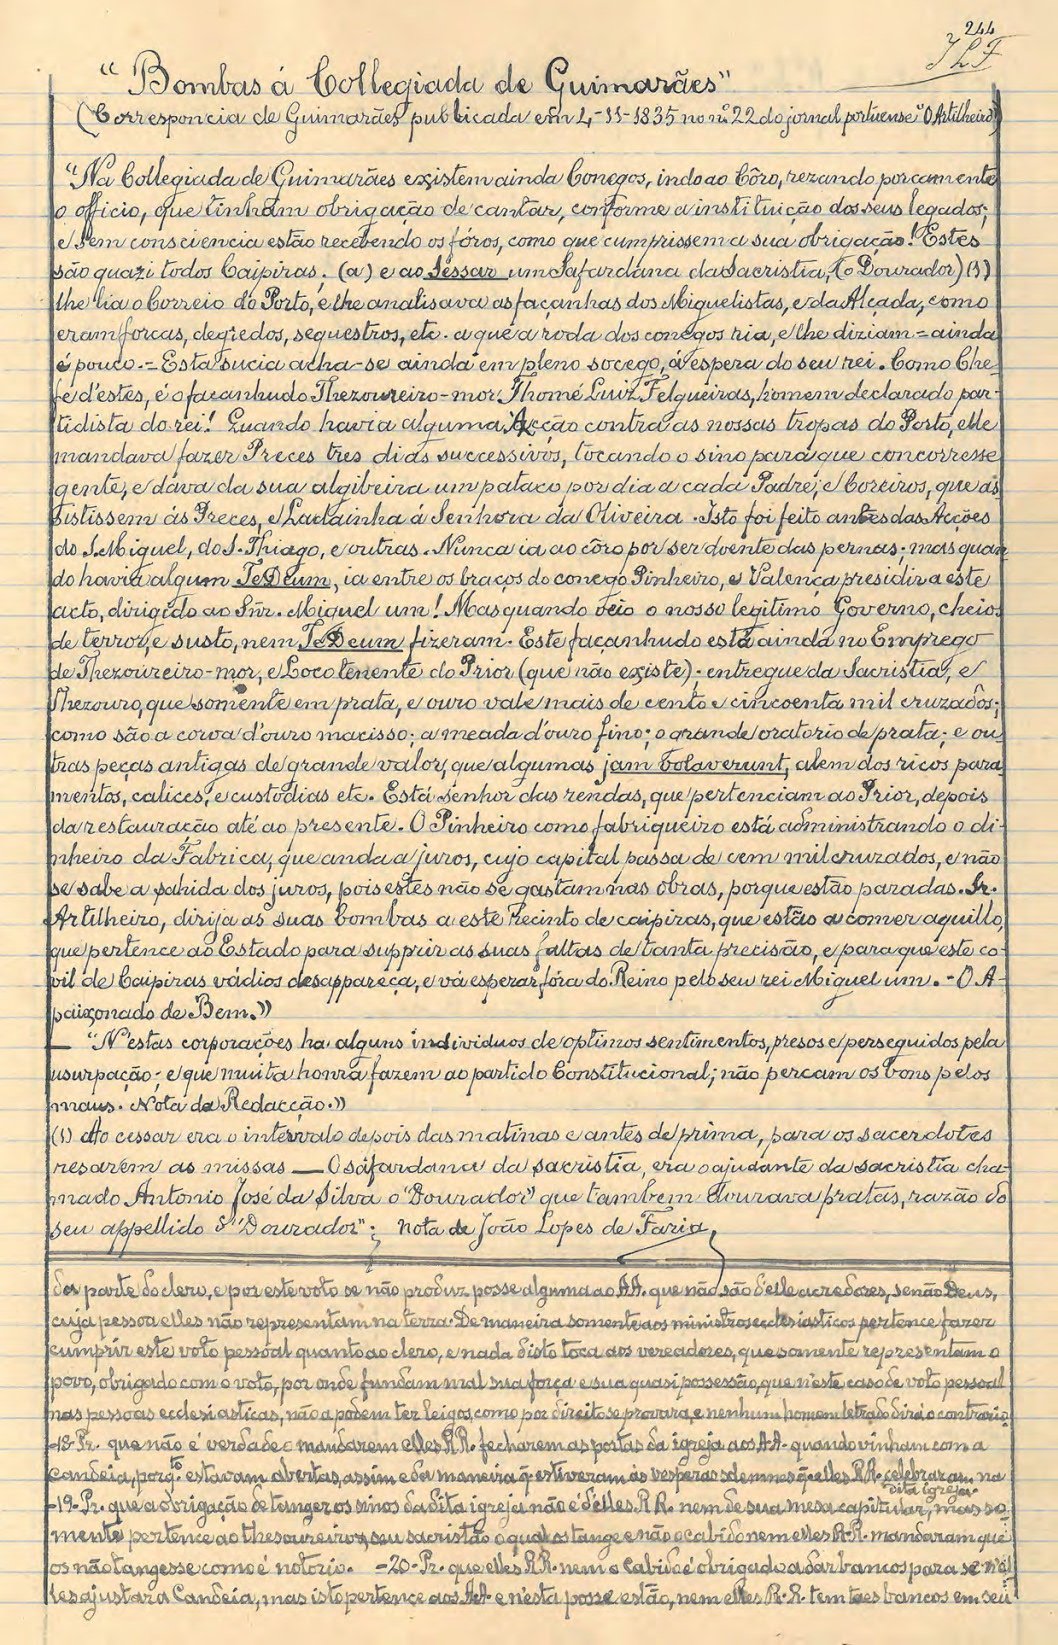 244
JLF
"Bombas á Collegiada de Guimarães"
(Corresponcia de Guimarães publicada em 4-11-1835 no nº 22 do jornal portuense "O Artilheiro")
"Na Collegiada de Guimarães existem ainda Conegos, indo ao Côro, rezando porcamente
o officio, que tinham obrigação de cantar, conforme a instituição dos seus legados;
e sem consciencia estão recebendo os fóros, como que cumprissem a sua obrigação! Estes
são quazi todos Caipiras. (a) e ao Sessar um Safardana da Sacristia, (o Dourador) (1)
lhe lia o Correio do Porto, e lhe analisava as façanhas dos Miguelistas, e da Alçada, como
eram forcas, degredos, sequestros, etc. a que a roda dos conegos ria, e lhe diziam = ainda
é pouco. = Esta sucia acha-se ainda em pleno socego, á espera do seu rei. Como Che-
fe d'estes, é o façanhudo Thezoureiro-mor Thomé Luiz Felgueiras, homem declarado par-
tidista do rei! Quando havia alguma Acção contra as nossas tropas do Porto, elle
mandava fazer Preces tres dias successivos, tocando o sino para que concorresse
gente, e dava da sua algibeira um pataco por dia a cada Padre, e Coreiros, que as-
sistissem ás Preces, e Ladainha á Senhora da Oliveira. Isto foi feito antes das Acções
do S. Miguel, do S. Thiago, e outras. Nunca ia ao côro por ser doente das pernas; mas quan-
do havia algum TeDeum, ia entre os braços do conego Pinheiro, e Valença presidir a este
acto, dirigido ao Snr. Miguel um! Mas quando veio o nosso legitimo Governo, cheios
de terror, e susto, nem TeDeum fizeram. Este façanhudo está ainda no Emprego
de Thezoureiro-mor, e Locotenente do Prior (que não existe); entregue da Sacristia, e
Thezouro, que somente em prata, e ouro vale mais de cento e cincoenta mil cruzados;
como são a coroa d'ouro macisso; a meada d'ouro fino; o grande oratorio de prata; e ou-
tras peças antigas de grande valor, que algumas jam volaverunt, alem dos ricos para-
mentos, calices, e custodias etc. Está senhor das rendas, que pertenciam ao Prior, depois
da restauração até ao presente. O Pinheiro como fabriqueiro está administrando o di-
nheiro da Fabrica, que anda a juros, cujo capital passa de cem mil cruzados, e não
se sabe a sahida dos juros, pois estes não se gastam nas obras, porque estão paradas. Sr.
Artilheiro, dirija as suas bombas a este recinto de caipiras, que estão a comer aquillo,
que pertence ao Estado para supprir as suas faltas de tanta precisão, e para que este co-
vil de Caipiras vádios desappareça, e vá esperar fóra do Reino pelo seu rei Miguel um. - O A-
paixonado de Bem.»
— "N'estas corporações ha alguns individuos de optimos sentimentos, presos e perseguidos pela
usurpação; e que muita honra fazem ao partido Constitucional; não percam os bons pelos
maus. Nota da Redacção.»
(1) Ao cessar era o intervalo depois das matinas e antes de prima, para os sacerdotes
resarem as missas — O safardana da sacristia, era o ajudante da sacristia cha-
mado Antonio José da Silva o "Dourador" que tambem dourava pratas, razão do
seu appellido o "Dourador"; nota de João Lopes de Faria,
da parte do clero, e por este voto se não produz posse alguma ao AA. que não são d'elle acredores, senão Deus,
cuja pessoa elles não representam na terra. De maneira somente aos ministros ecclesiasticos pertence fazer
cumprir este voto pessoal quanto ao clero, e nada d'isto toca aos vereadores, que somente representam o
povo, obrigado com o voto, por onde fundam mal sua força e sua quasi possessão, que n'este caso de voto pessoal
nas pessoas ecclesiasticas, não a podem ter leigos, como por direito se provara, e nenhum homem letrado dirá o contrario
-18- Pr. que não é verdade mandarem elles RR. fecharem as portas da igreja aos AA. quando vinham com a
candeia, porq.to estavam abertas, assim e da maneira q. estiveram ás vesperas solemnes q. elles RR. celebraram na
dita igreja.
-19- Pr. que a obrigação de tanger os sinos da dita igreja não é d'elles RR. nem de sua mesa capitular, mas so-
mente pertence ao thesoureiro e seu sacristão o qual os tange e não o cabido nem elles R.R. mandaram que
os não tangesse como é notorio. -20- Pr. que elles RR. nem o Cabido é obrigado a dar bancos para se n'el-
les ajustar a Candeia, mas isto pertence aos AA. e n'esta posse estão, nem elles R.R. tem taes bancos em seu